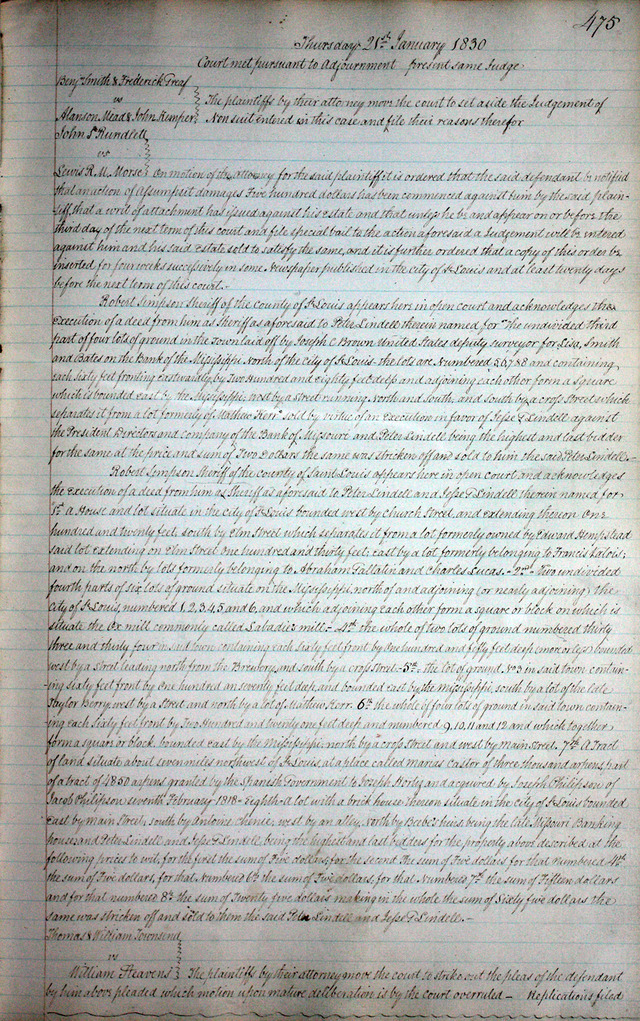 475
Thursday 21st January 1830
Court met pursuant to Adjournment present same Judge
Benjn Smith & Frederick Treaf
vs
The plaintiffs by their attorney move the court to set aside the Judgement of
Alanson Mead & John Kemper
Non suit entered in this case and file their reasons therefor
John S Rundlett
vs
Lewis R. M. Morse On motion of the attorney for the said plaintiff it is ordered that the said defendant be notified
that an action of assumpsit damages Five hundred dollars has been commenced against him by the said plain-
tiff that a writ of attachment has issued against his estate and that unless he be and appear on or before the
third day of the next term of this court and file special bail to the action aforesaid a Judgement will be entered
against him and his said estate sold to satisfy the same, and it is further ordered that a copy of this order be
inserted for four weeks successively in some Newspaper published in the city of St Louis and at least twenty days
before the next term of this court.-
Robert Simpson Sheriff of the county of St Louis appears here in open court and acknowledges the
Execution of a deed from him as Sheriff as aforesaid to Peter Lindell therein named for "the undivided third
part of four lots of ground in the Town laid off by Joseph C Brown United States deputy surveyor for Lisa, Smith
and Bates on the bank of the Mississippi North of the city of St Louis- the lots are Numbered 5 6 7 & 8 and containing
each Sixty feet fronting eastwardly by Two Hundred and eighty feet deep and adjoining each other form a square
which is bounded east by the Mississippi, west by a street running North and South, and south by a cross Street which
separates it from a lot formerly of Mathew Kerr" sold by virtue of an Execution in favor of Jesse G Lindell against
the President Directors and company of the Bank of Missouri and Peter Lindell being the highest and last bidder
for the same at the price and sum of Two Dollars the same was stricken off and sold to him the said Peter Lindell.-
Robert Simpson Sheriff of the county of Saint Louis appears here in open court and acknowledges
the execution of a deed from him as Sheriff as aforesaid to Peter Lindell and Jesse G Lindell therein named for
1st a House and lot situate in the city of St Louis bounded west by church Street, and extending thereon One
hundred and twenty feet, south by Elm Street which separates it from a lot formerly owned by Edward Hempstead
said lot extending on Elm Street One hundred and thirty feet, east by a lot formerly belonging to Francis
and on the north by lots formerly belonging to Abraham Gallatin and Charles Lucas- 2nd Two undivided
fourth parts of six lots of ground situate on the Mississippi, north of and adjoining (or nearly adjoining) the
city of St Louis, numbered 1, 2, 3, 4, 5 and 6, and which adjoining each other form a square or block on which is
situate the Ox mill commonly called Labadie's mill.- 4th the whole of two lots of ground numbered thirty
three and thirty four in said town containing each sixty feet front by One hundred and fifty feet deep (more or less) bounded
west by a street leading north from the Brewery, and south by a cross Street- 5th. the lot of ground No 3 in said town contain-
ing sixty feet front by One hundred an seventy feet deep, and bounded east by the Mississippi, south by a lot of the late
Taylor Berry, west by a Street and north by a lot of Mathew Kerr- 6th the whole of four lots of ground in said town contain-
ing each Sixty feet front by Two Hundred and twenty one feet deep and numbered 9, 10, 11 and 12 and which together
form a square or block, bounded east by the Mississippi, north by a cross Street and west by Main Street. 7th A Tract
of land situate about seven miles northwest of St Louis, at a place called Marias castor of three thousand arpens, part
of a tract of 4850 arpens granted by the Spanish Government to Joseph and acquired by Joseph Philipson of
Jacob Philipson seventh February 1818- Eighth- a lot with a brick house thereon situate in the city of St Louis bounded
east by main Street, south by Antoine Chenie, west by an alley, North by Beebe's heirs being the late Missouri Banking
house, and Peter Lindell and Jesse G Lindell being the highest and last bidders for the property above described at the
following prices to wit, for the first the sum of Five dollars, for the second the sum of Five dollars for that numbered 4th
the sum of Five dollars, for that Numbered 6th the sum of Five dollars, for that Numbered 7th the sum of Fifteen dollars
and for that numbered 8th the sum of Twenty five dollars making in the whole the sum of Sixty five dollars the
same was stricken off and sold to them the said Peter Lindell and Jesse G Lindell.-
Thomas & William Townsend
vs
William Heavens The plaintiffs by their attorney move the court to strike out the pleas of the defendant
by him above pleaded which motion upon mature deliberation is by the court overruled - Replications filed